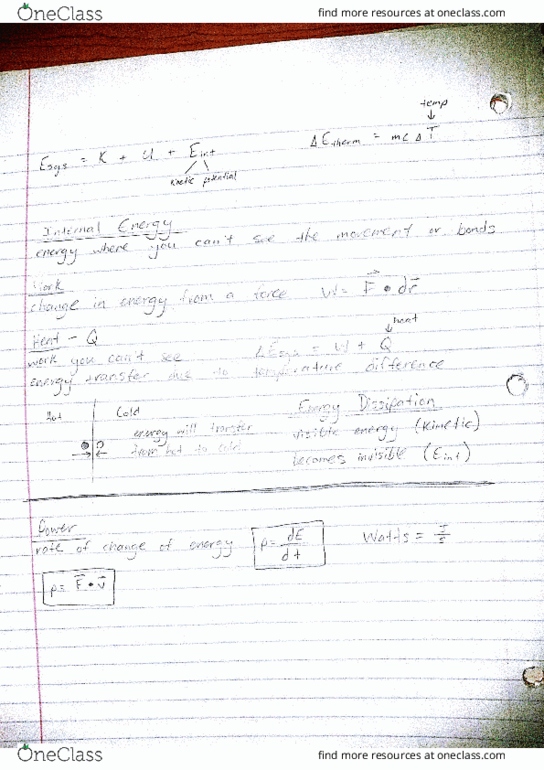 OneClass
find more resources at oneclass.com
temp
↓
E_sys = K + U + E_int
ΔE_therm = mcΔT
kinetic potential
Internal Energy
energy where you can't see the movement or bonds
Work
change in energy from a force W = F⃗ • dr⃗
heat
↓
Heat - Q
work you can't see ΔE_sys = W + Q
energy transfer due to temperature difference
Hot Cold
energy will transfer
from hot to cold
Energy Dissipation
visible energy (Kinetic)
becomes invisible (E_int)
Power
rate of change of energy P = dE/dt Watts = J/s
P = F⃗ • v⃗
OneClass
find more resources at oneclass.com